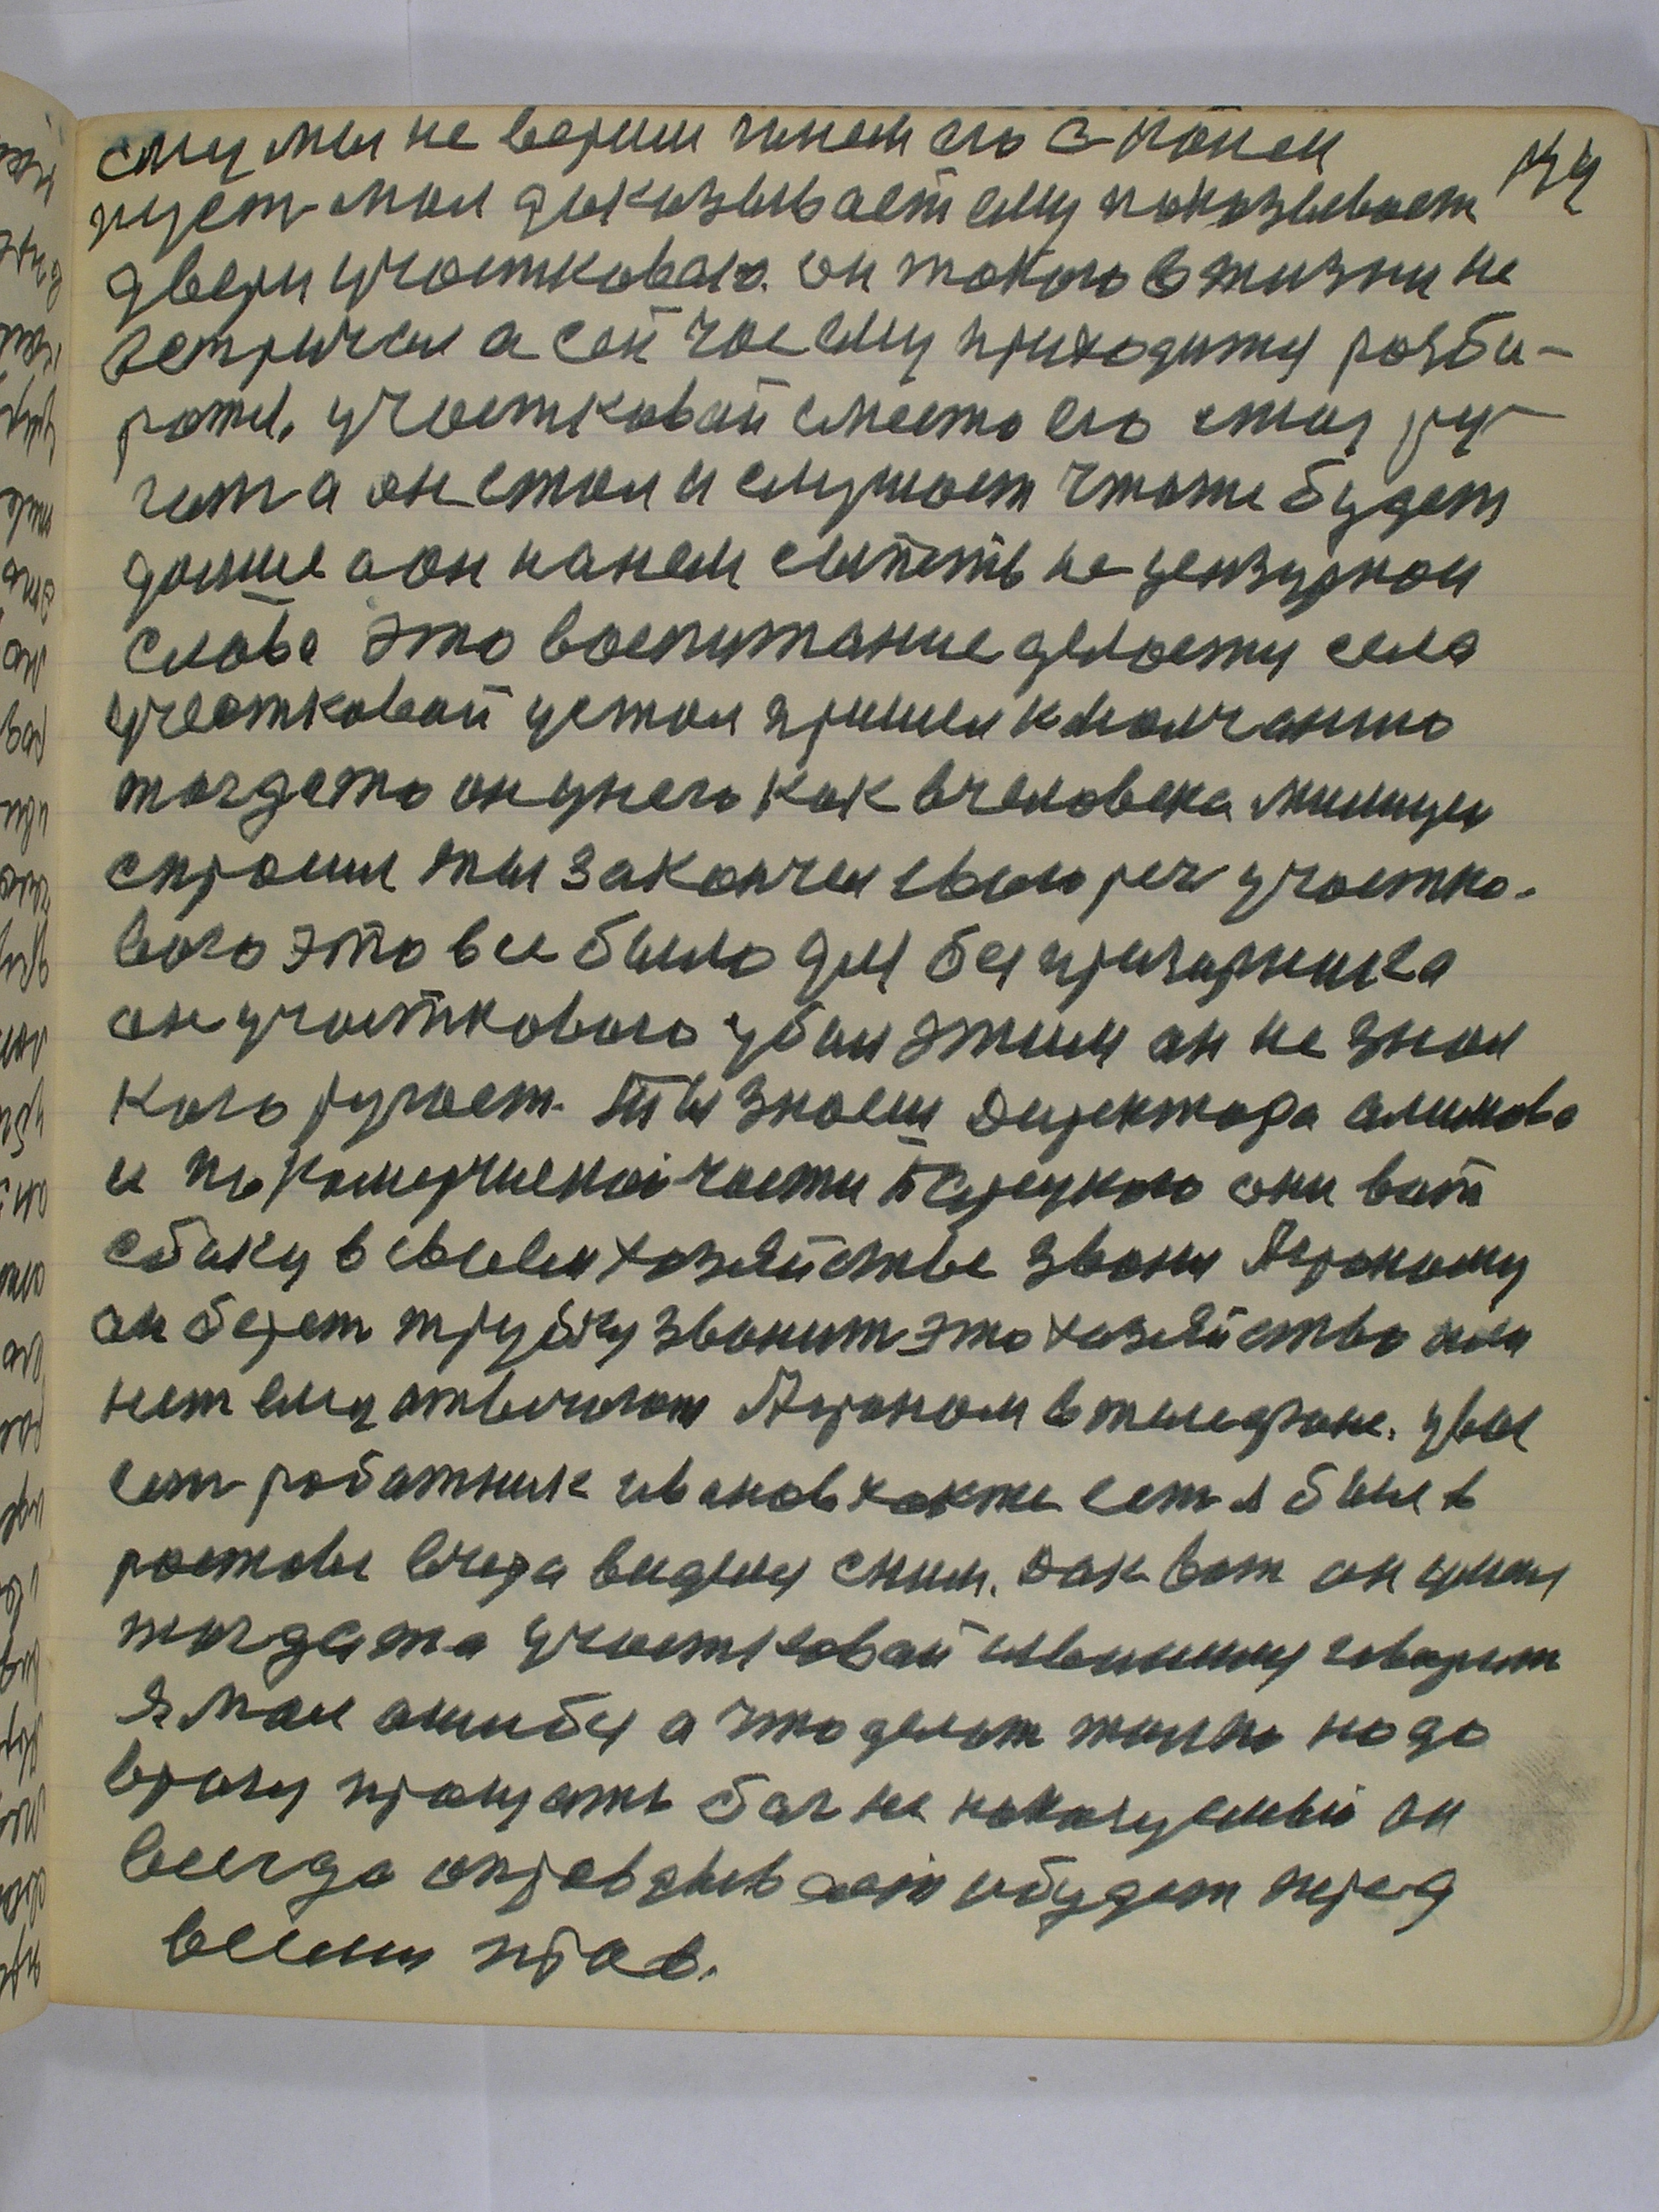 ему мы не верим гоним его с
пуст мол доказывает ему показывает
двери участковаго. он такого в жизни не
встричал а сей час ему приходитя разби-
рать. участковай сместо его стал ру
гать а он стал и слушает чтоже будет
дальше а он на нем сыпеть не цензурном
слова это воспитание делаетя села
участковай устал пришел к молчанию
тогдато он у него как в человека милиции
спросил ты закончел свою реч участко-
вого это все было для без призорника
он участкового убил этим он не знал
кого ругает. Ты знаеш Директора
и по комерческой части они вот
сбоку в своем хозяйстве звони Агроному
он берет трубку звонит это хозяйство или
нет ему отвичают Агроном в телефоне. у вас
ест работник иванов какже ест я был в
ростове вчера виделся сним. Дак вот он у меня
тогда та участковай извинился говорит
Я мол ошибся а что делат толко надо
врагу прощать бог не он
всегда оправдывает и будет перед
всеми прав.